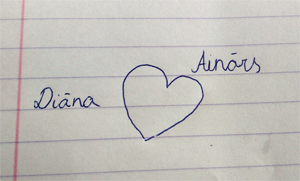 Ainārs
Diāna